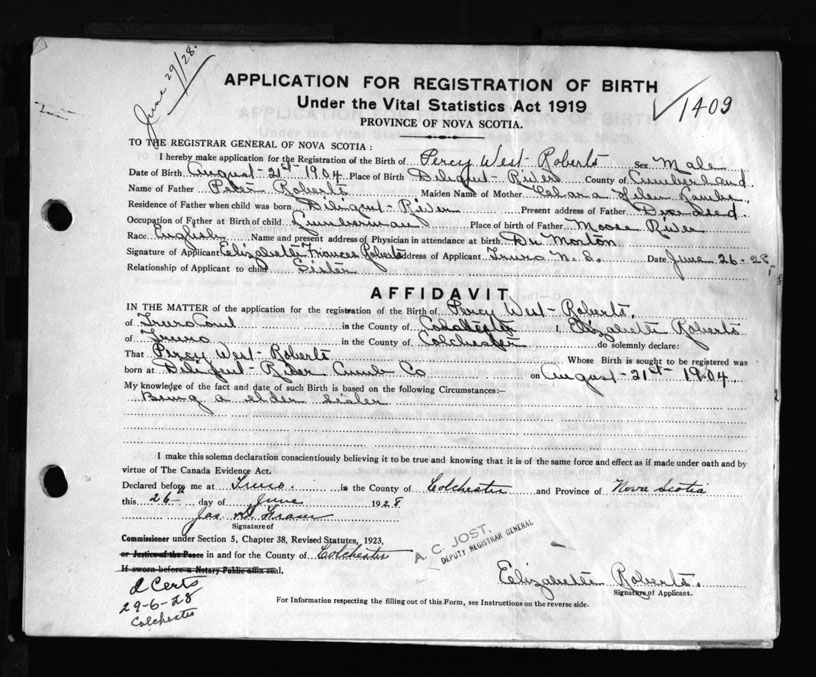 June 29/28.
APPLICATION FOR REGISTRATION OF BIRTH
Under the Vital Statistics Act 1919
1409
PROVINCE OF NOVA SCOTIA.
TO THE REGISTRAR GENERAL OF NOVA SCOTIA :
I hereby make application for the Registration of the Birth of Percy West-Roberts Sex Male
Date of Birth August-21st-1904 Place of Birth Diligent-River County of Cumberland.
Name of Father Peter Roberts Maiden Name of Mother Helen
Residence of Father when child was born Diligent-River Present address of Father Decessed
Occupation of Father at Birth of child Lumberman Place of birth of Father Moose River
Race English Name and present address of Physician in attendance at birth Dr Morton
Signature of Applicant Elizabeth Frances Roberts Address of Applicant Truro N. S. Date June 26-28
Relationship of Applicant to child Sister
AFFIDAVIT
IN THE MATTER of the application for the registration of the Birth of Percy West-Roberts.
of Truro in the County of Colchester I, Elizabeth Roberts
of Truro in the County of Colchester do solemnly declare:
That Percy West-Roberts Whose Birth is sought to be registered was
born at Diligent-River Cumb Co on August-21st-1904.
My knowledge of the fact and date of such Birth is based on the following Circumstances:—
Being a elder sister
I make this solemn declaration conscientiously believing it to be true and knowing that it is of the same force and effect as if made under oath and by
virtue of The Canada Evidence Act.
Declared before me at Truro. in the County of Colchester and Province of Nova Scotia
this 26th day of June 1928
Jas.
Signature of
Commissioner under Section 5, Chapter 38, Revised Statutes, 1923,
or Justice of the Peace in and for the County of Colchester
If sworn before a Notary Public affix seal.
A. C. JOST,
DEPUTY REGISTRAR GENERAL
Elizabeth Roberts.
Signature of Applicant.
Cert
29-6-28
Colchester
For Information respecting the filling out of this Form, see Instructions on the reverse side.